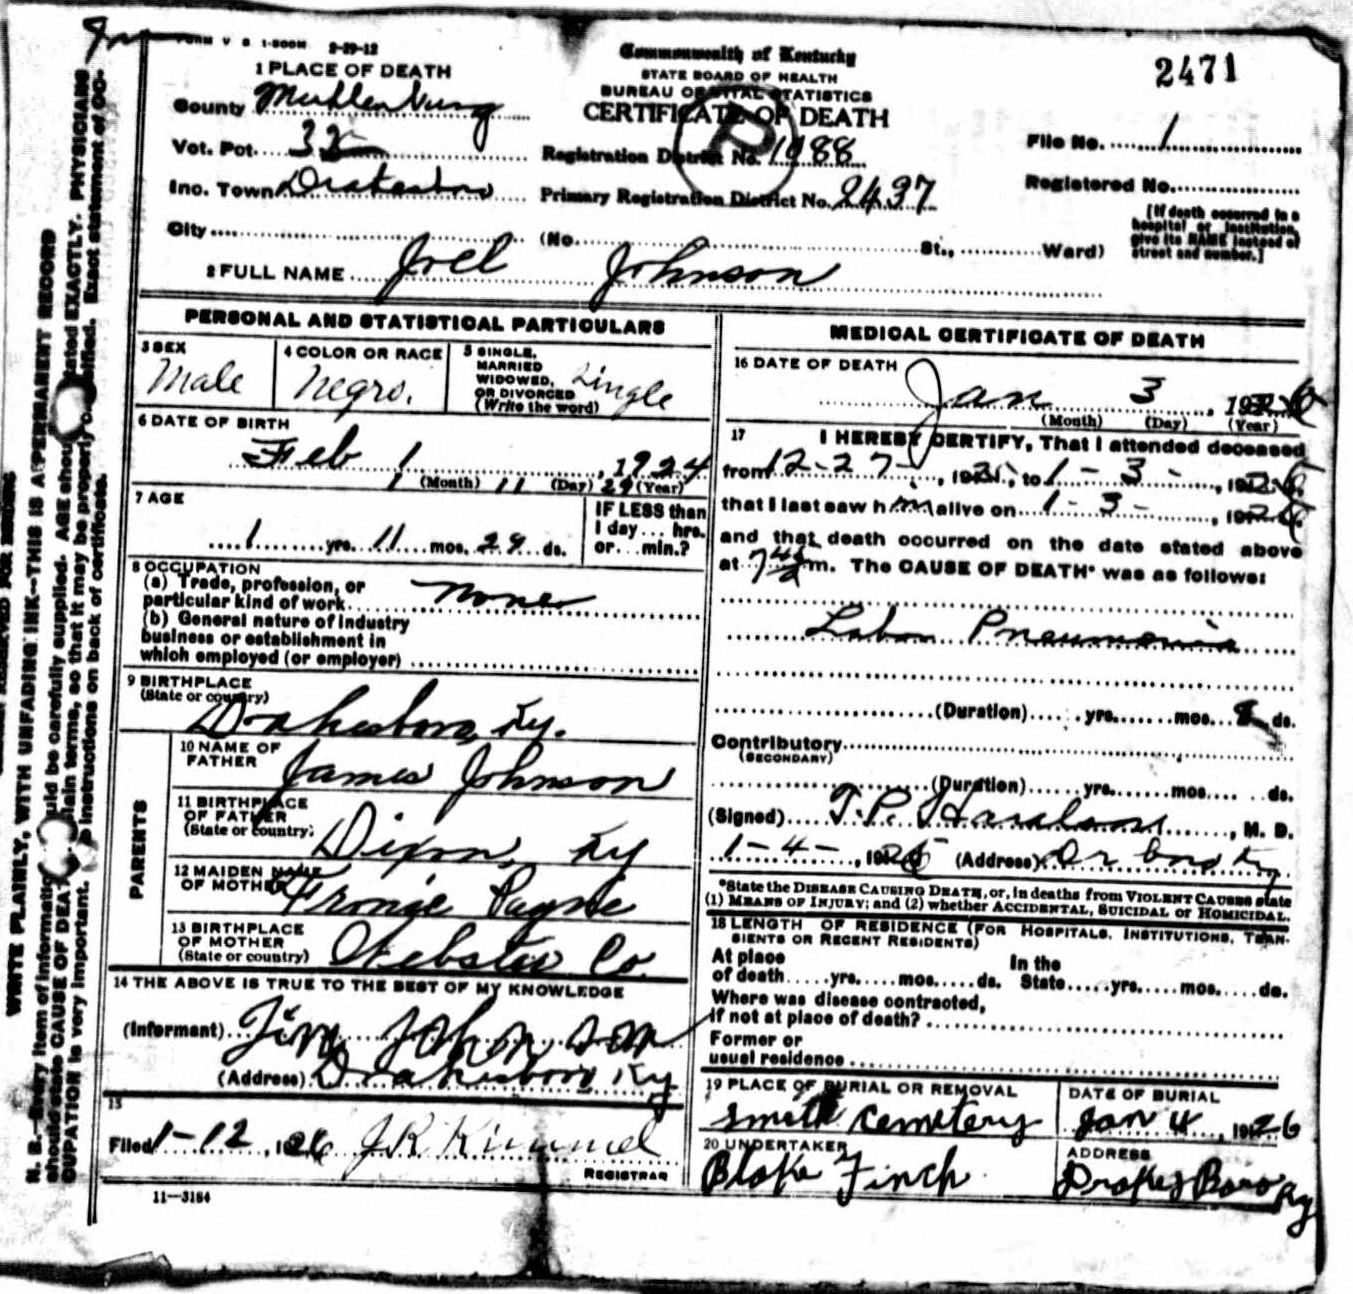 FORM V S 1-500M 2-29-12
Commonwealth of Kentucky
STATE BOARD OF HEALTH
BUREAU OF VITAL STATISTICS
CERTIFICATE OF DEATH
2471
1 PLACE OF DEATH
County Muhlenburg
Vot. Pct. 32
Registration District No. 1088
File No. 1
Inc. Town Drakesboro
Primary Registration District No. 2437
Registered No.
City (No. St., Ward)
[If death occurred in a hospital or institution, give its NAME instead of street and number.]
2 FULL NAME Joel Johnson
PERSONAL AND STATISTICAL PARTICULARS
3 SEX Male
4 COLOR OR RACE Negro.
5 SINGLE, MARRIED WIDOWED, OR DIVORCED (Write the word) Single
6 DATE OF BIRTH
Feb 1, 1924
1 (Month) 11 (Day) 29 (Year)
7 AGE
1 yrs. 11 mos. 29 ds.
IF LESS than 1 day... hrs. or... min.?
8 OCCUPATION
(a) Trade, profession, or particular kind of work None
(b) General nature of industry
business or establishment in
which employed (or employer)
9 BIRTHPLACE
(State or country)
Drakesboro, Ky.
PARENTS
10 NAME OF FATHER James Johnson
11 BIRTHPLACE OF FATHER (State or country) Dixon, Ky
12 MAIDEN NAME OF MOTHER Fronie Payne
13 BIRTHPLACE OF MOTHER (State or country) Webster Co.
14 THE ABOVE IS TRUE TO THE BEST OF MY KNOWLEDGE
(Informant) Jim Johnson
(Address) Drakesboro Ky
15
Filed 1-12, 1926 J.R. Kimmel
REGISTRAR
11-3184
MEDICAL CERTIFICATE OF DEATH
16 DATE OF DEATH
Jan 3, 1926
(Month) (Day) (Year)
17 I HEREBY CERTIFY, That I attended deceased
from 12-27-, 1925, to 1-3-, 1926,
that I last saw him alive on 1-3-, 1926
and that death occurred on the date stated above
at m. The CAUSE OF DEATH* was as follows:
Lobar Pneumonia
(Duration) yrs. mos. 8 ds.
Contributory
(SECONDARY)
(Duration) yrs. mos. ds.
(Signed) T.P. Haralson, M. D.
1-4-, 1926 (Address) Dr boro Ky
*State the DISEASE CAUSING DEATH, or, in deaths from VIOLENT CAUSES state
(1) MEANS OF INJURY; and (2) whether ACCIDENTAL, SUICIDAL or HOMICIDAL.
18 LENGTH OF RESIDENCE (FOR HOSPITALS, INSTITUTIONS, TRAN-
SIENTS OR RECENT RESIDENTS)
At place of death yrs. mos. ds. In the State yrs. mos. ds.
Where was disease contracted,
if not at place of death?
Former or
usual residence
19 PLACE OF BURIAL OR REMOVAL
Smith Cemetery
DATE OF BURIAL
Jan 4, 1926
20 UNDERTAKER
Blake Finch
ADDRESS
Drakes Boro Ky
WRITE PLAINLY, WITH UNFADING INK—THIS IS A PERMANENT RECORD
N. B.—Every item of information should be carefully supplied. AGE should be stated EXACTLY. PHYSICIANS
should state CAUSE OF DEATH in plain terms, so that it may be properly classified. Exact statement of OC-
CUPATION is very important. See instructions on back of certificate.